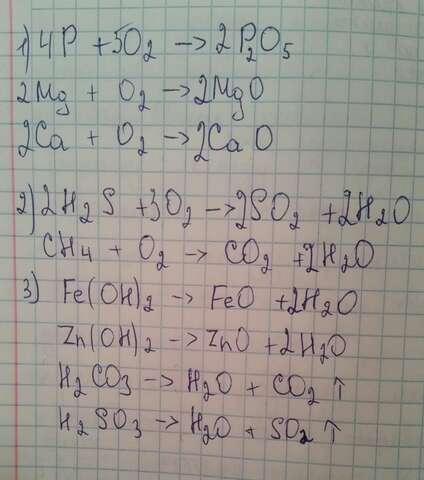 1) 4P + 5O₂ → 2P₂O₅
2Mg + O₂ → 2MgO
2Ca + O₂ → 2CaO
2) 2H₂S + 3O₂ → 2SO₂ + 2H₂O
CH₄ + O₂ → CO₂ + 2H₂O
3) Fe(OH)₂ → FeO + 2H₂O
Zn(OH)₂ → ZnO + 2H₂O
H₂CO₃ → H₂O + CO₂ ↑
H₂SO₃ → H₂O + SO₂ ↑